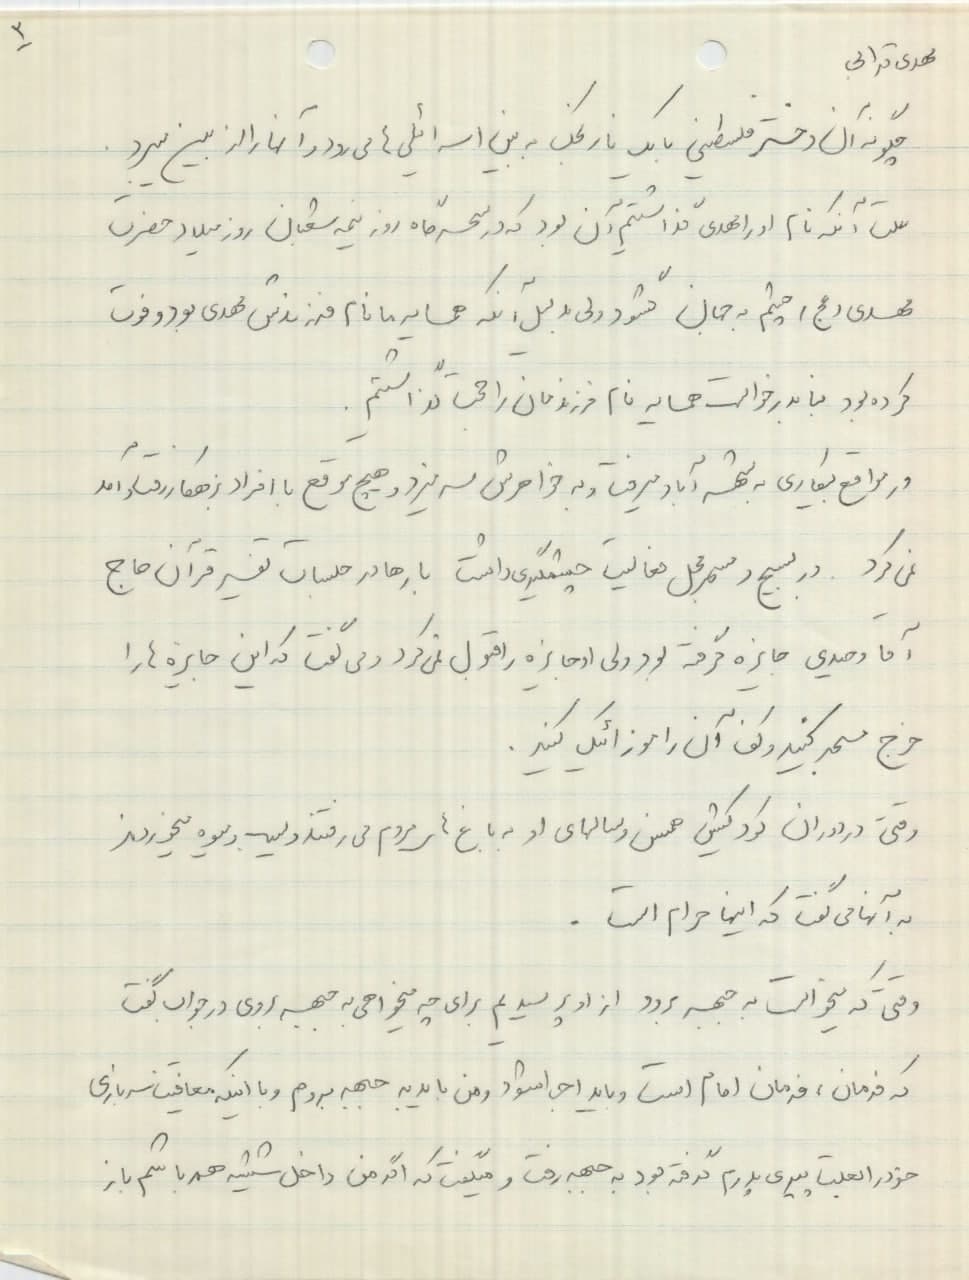 ۳
مهدی قرائی
چگونه آن دختر فلسطینی با یک نارنجک به بین اسرائیلی ها می رود و آنها را از بین میبرد .
علت آنکه نام او را مهدی گذاشتیم آن بود که در سحرگاه روز نیمه شعبان روز میلاد حضرت
مهدی (عج) چشم به جهان گشود ولی بدلیل آنکه همسایه ما نام فرزندش مهدی بود و فوت
کرده بود بنا بدرخواست همسایه نام فرزندمان را حجت گذاشتیم .
در مواقع بیکاری به بهشت آباد میرفت و به خواهرش سر میزد و هیچ موقع با افراد بزهکار رفت و آمد
نمی کرد . در بسیج و مسجد محل فعالیت چشمگیری داشت بارها در جلسات تفسیر قرآن حاج
آقا وحیدی جایزه گرفته بود ولی او جایزه را قبول نمی کرد و می گفت که این جایزه ها را
خرج مسجد کنید و کف آن را موزائیک کنید .
وقتی در دوران کودکیش همسن و سالهای او به باغ های مردم می رفتند و سیب و میوه میخوردند
به آنها می گفت که اینها حرام است .
وقتی که میخواست به جبهه برود از او پرسیدیم برای چه میخواهی به جبهه بروی در جواب گفت
که فرمان ، فرمان امام است و باید اجرا شود و من باید به جبهه بروم و با اینکه معافیت سربازی
خود را بعلت پیری پدرم گرفته بود به جبهه رفت و میگفت که اگر من داخل شیشه هم باشم باز